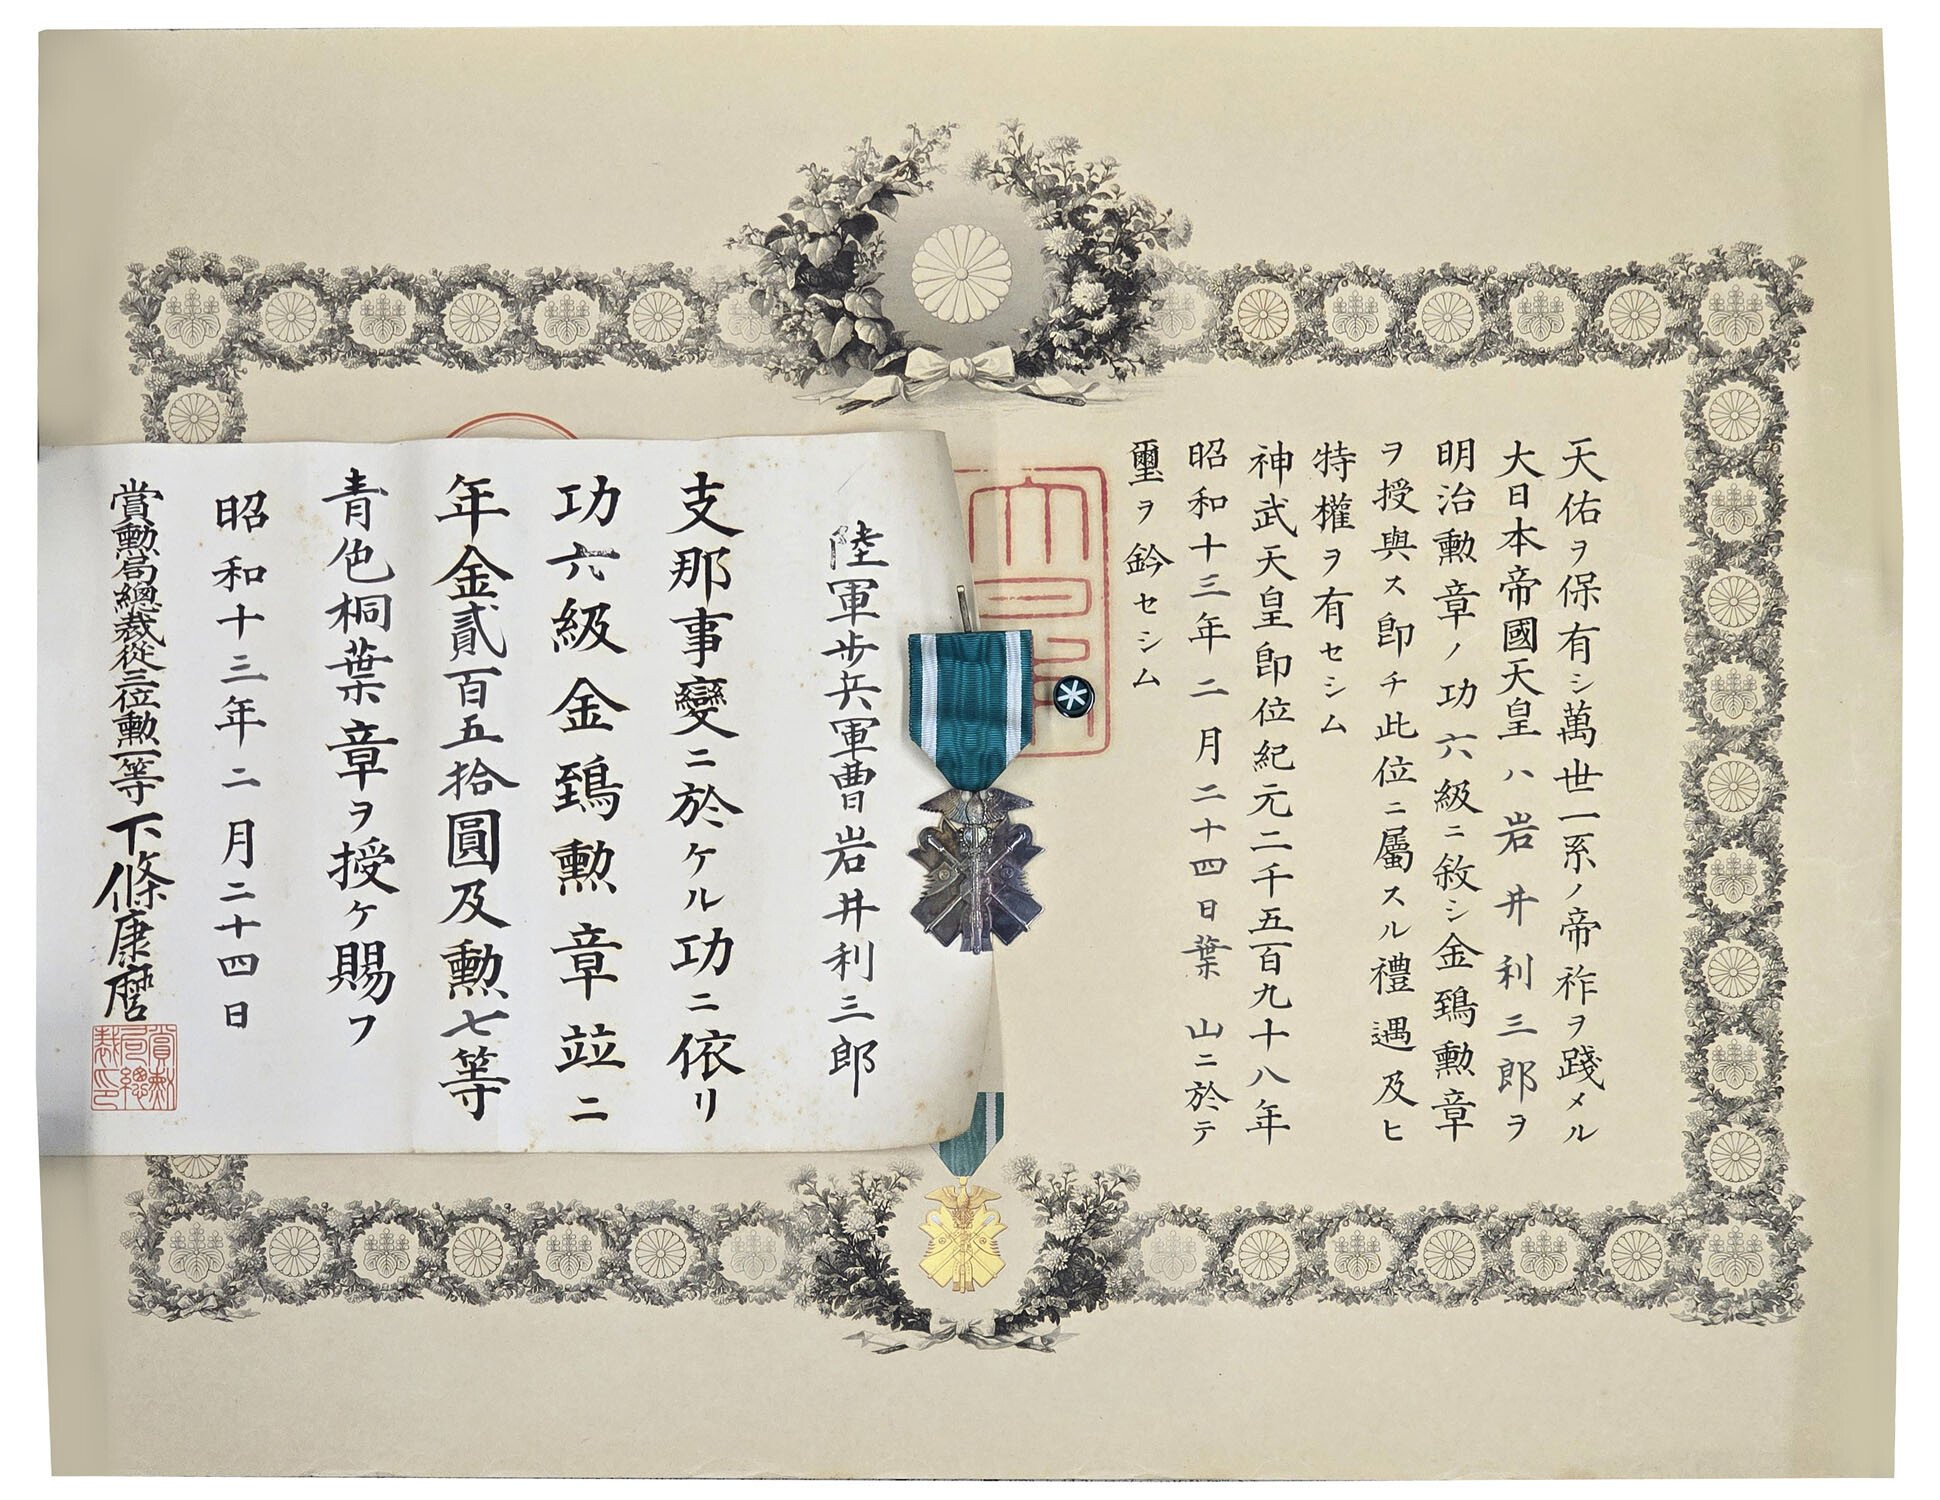 天佑ヲ保有シ萬世一系ノ帝祚ヲ踐メル
大日本帝國天皇ハ岩井利三郎ヲ
明治勲章ノ功六級ニ敘シ金鵄勲章
ヲ授與ス即チ此位ニ屬スル禮遇及ヒ
特權ヲ有セシム
神武天皇即位紀元二千五百九十八年
昭和十三年二月二十四日葉山ニ於テ
璽ヲ鈐セシム
陸軍歩兵軍曹岩井利三郎
支那事變ニ於ケル功ニ依リ
功六級金鵄勲章竝ニ
年金貳百五拾圓及勲七等
青色桐葉章ヲ授ケ賜フ
昭和十三年二月二十四日
賞勲局總裁從三位勲一等下條康麿
賞勲局總裁印